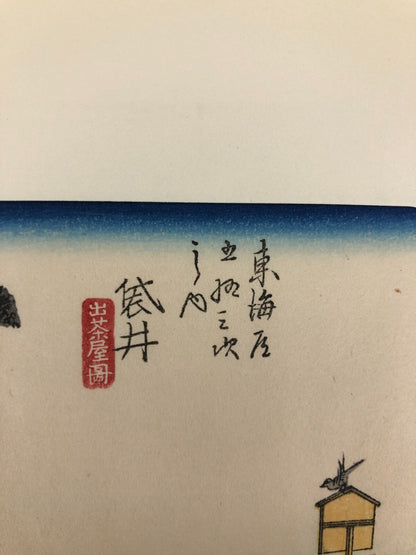 東海道
五拾三次
之内
袋井
出茶屋圖